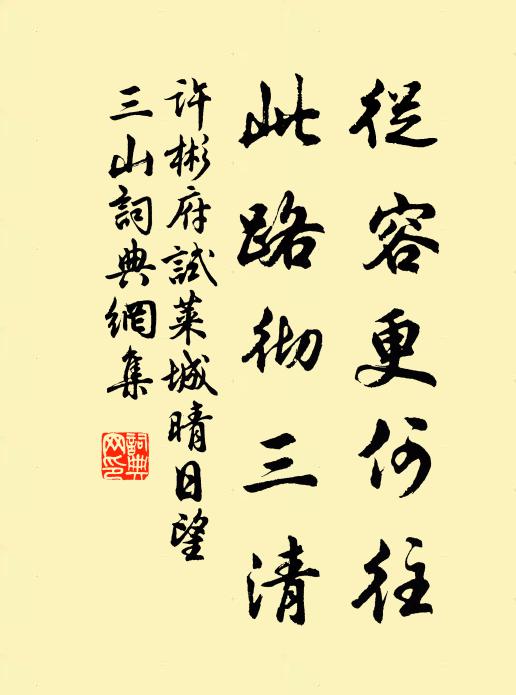 從容更何往
此路彻三清
許彬府試萊城晴日望
三山詞典網集
詞典
网印